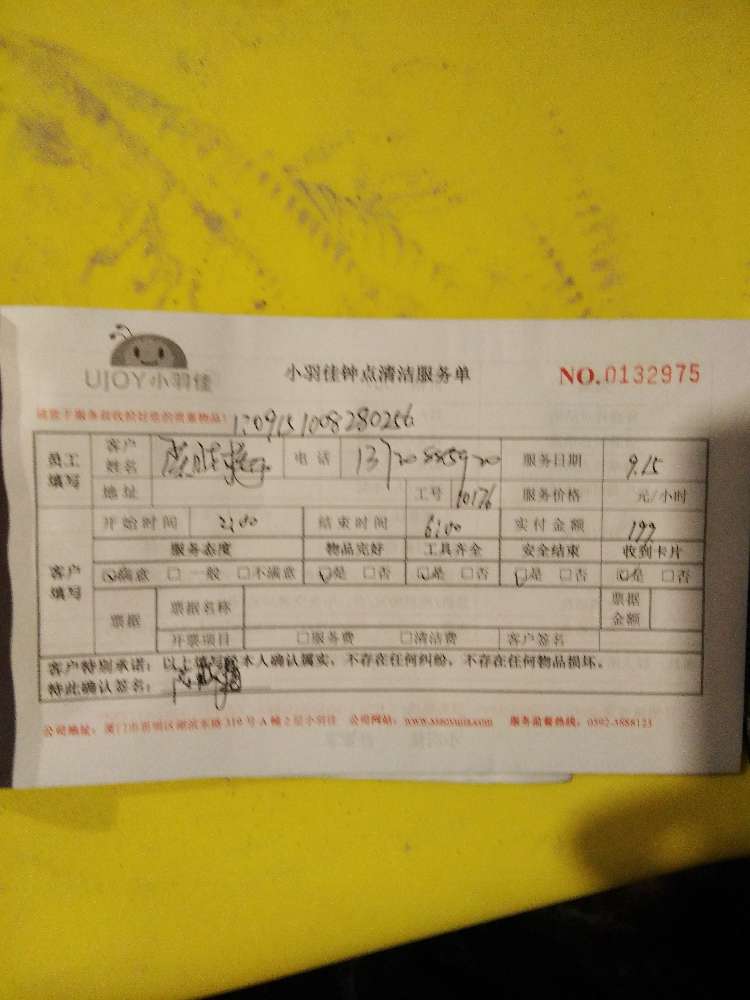 UJOY小羽佳
小羽佳钟点清洁服务单
NO.0132975
请您于服务前收拾好您的贵重物品!
1709151008280256
员工填写 客户姓名 电话 服务日期 9.15
地址 工号 10176 服务价格 元/小时
开始时间 2:00 结束时间 6:00 实付金额 199
客户填写 服务态度 物品完好 工具齐全 安全结束 收到卡片
☑满意 □一般 □不满意 ☑是 □否 ☑是 □否 ☑是 □否 ☑是 □否
票据 票据名称 票据金额
开票项目 □服务费 □清洁费 客户签名
客户特别承诺：以上填写经本人确认属实，不存在任何纠纷，不存在任何物品损坏。
特此确认签名：
公司地址：厦门市思明区湖滨东路319号A幢2层小羽佳 公司网站：www.xiaoyujia.com 服务监督热线：0592-3888123